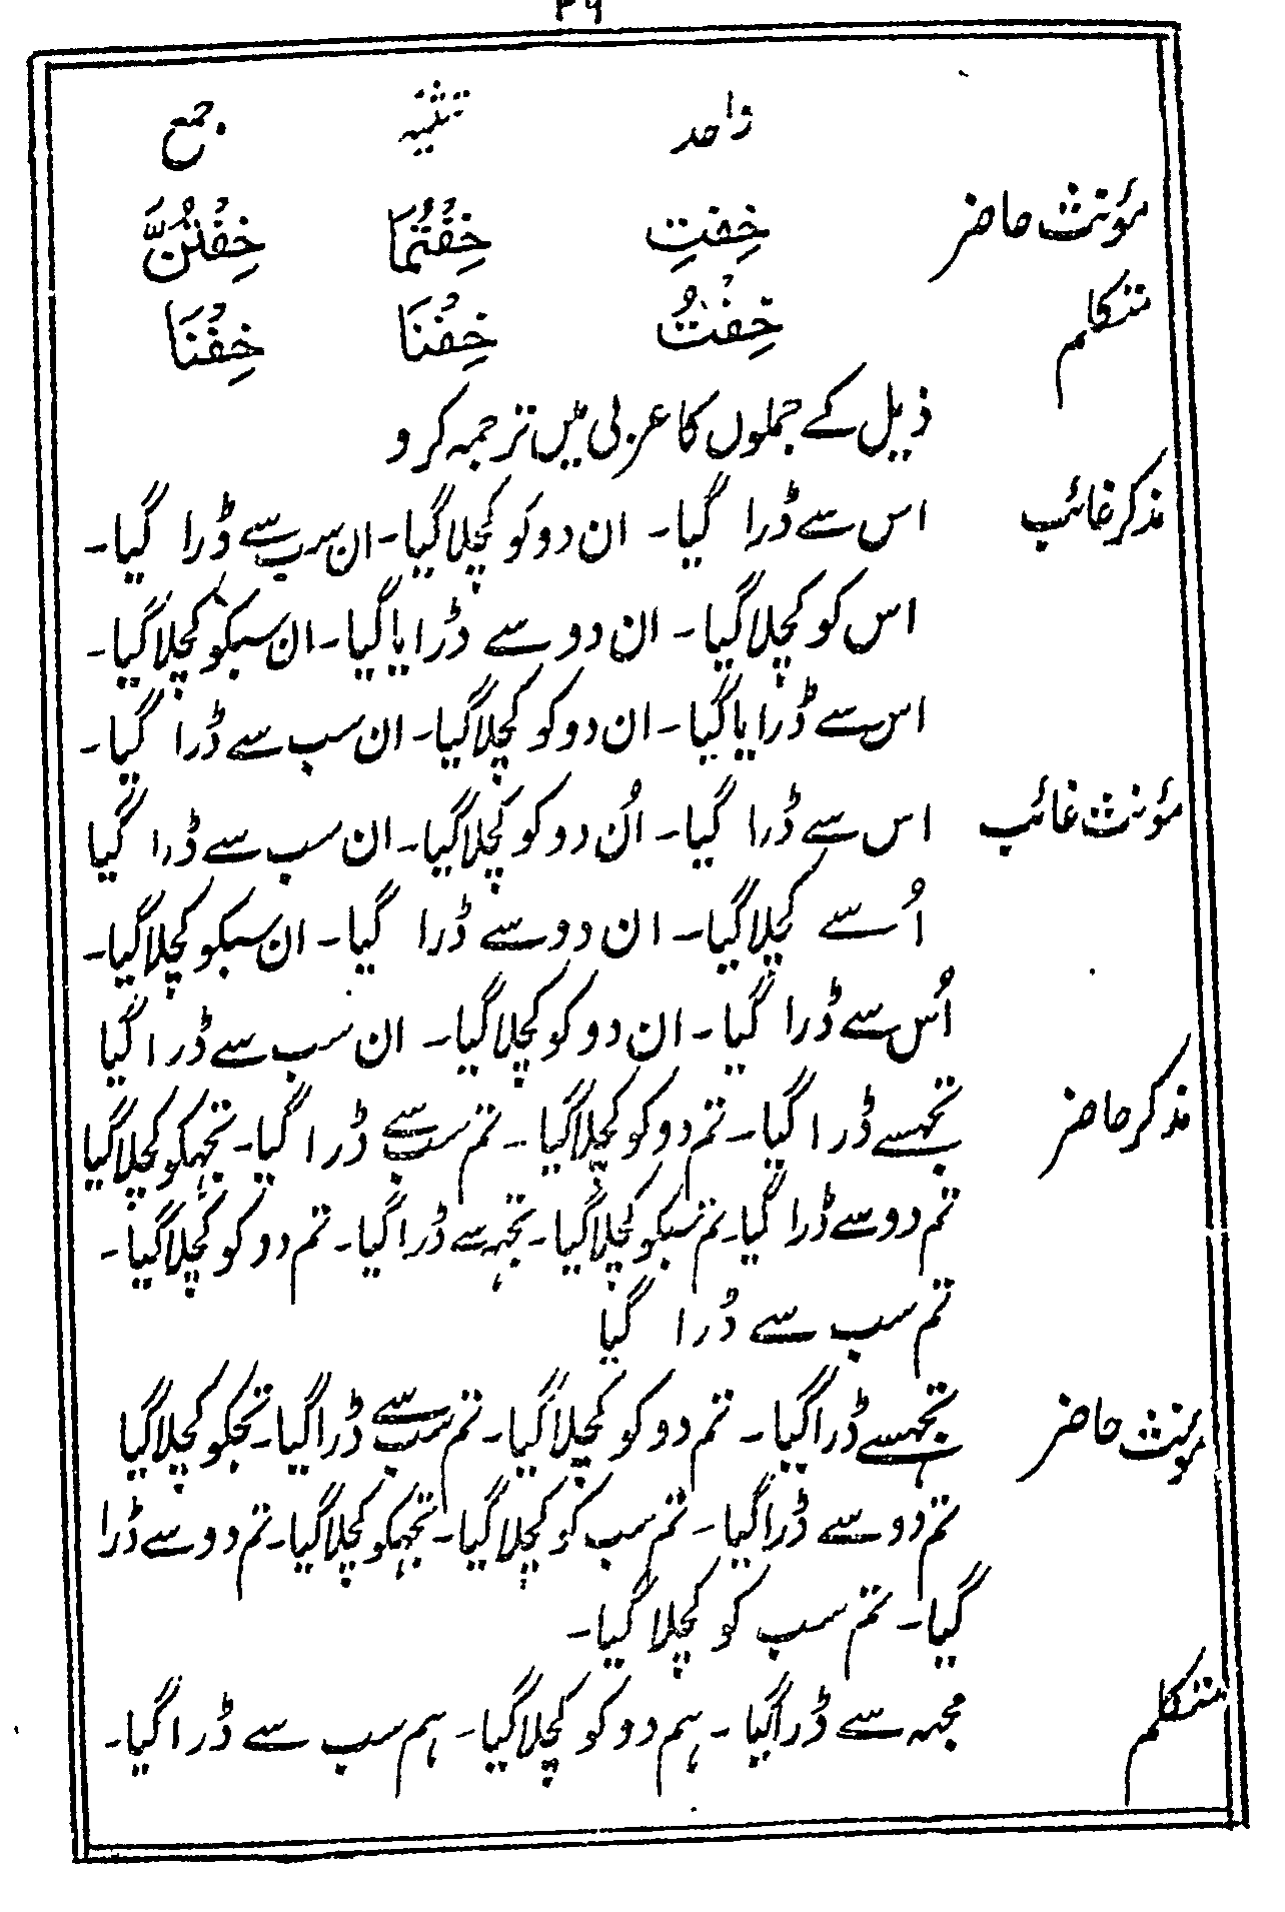 واحد تثنیہ جمع
مؤنث حاضر خِفْتِ خِفْتُمَا خِفْتُنَّ
متکلم خِفْتُ خِفْنَا خِفْنَا
ذیل کے جملوں کا عربی میں ترجمہ کرو
مذکر غائب اس سے ڈرا گیا۔ ان دو کو کچلا گیا۔ ان سب سے ڈرا گیا۔
اس کو کچلا گیا۔ ان دو سے ڈرایا گیا۔ ان سبکو کچلا گیا۔
اس سے ڈرایا گیا۔ ان دو کو کچلا گیا۔ ان سب سے ڈرا گیا۔
مؤنث غائب اس سے ڈرا گیا۔ اُن دو کو کچلا گیا۔ ان سب سے ڈرا گیا
اُسے کچلا گیا۔ ان دو سے ڈرا گیا۔ ان سبکو کچلا گیا۔
اُس سے ڈرا گیا۔ ان دو کو کچلا گیا۔ ان سب سے ڈرا گیا
مذکر حاضر تجہسے ڈرا گیا۔ تم دو کو کچلا گیا۔ تم سب سے ڈرا گیا۔ تجہکو کچلا گیا
تم دو سے ڈرا گیا۔ تم سبکو کچلا گیا۔ تجہ سے ڈرا گیا۔ تم دو کو کچلا گیا۔
تم سب سے ڈرا گیا
مؤنث حاضر تجہسے ڈرا گیا۔ تم دو کو کچلا گیا۔ تم سب سے ڈرا گیا۔ تجکو کچلا گیا
تم دو سے ڈرا گیا۔ تم سب کو کچلا گیا۔ تجہکو کچلا گیا۔ تم دو سے ڈرا
گیا۔ تم سب کو کچلا گیا۔
متکلم مجہ سے ڈرا گیا۔ ہم دو کو کچلا گیا۔ ہم سب سے ڈرا گیا۔